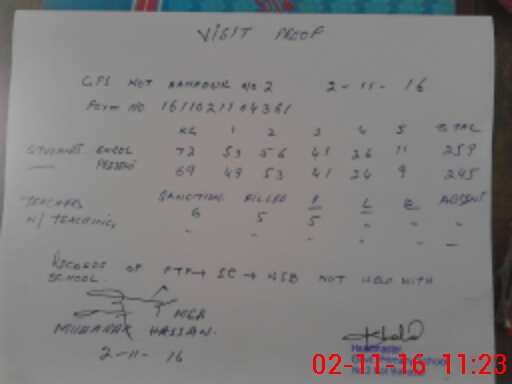 VISIT PROOF
GPS KOT BAHADUR NO 2 2-11-16
FORM NO. 1611021104361
KG 1 2 3 4 5 TOTAL
STUDENTS ENROL 72 53 56 41 26 11 259
PRESENT 69 49 53 41 24 9 245
SANCTION FILLED P L ABSENT
TEACHERS 6 5 5 - - -
N/TEACHING - - - - - -
RECORDS OF PTF → SC → NSB NOT HELD WITH
SCHOOL.
MEA
MUBARAK HASSAN.
2-11-16
Headmaster
02-11-16 11:23